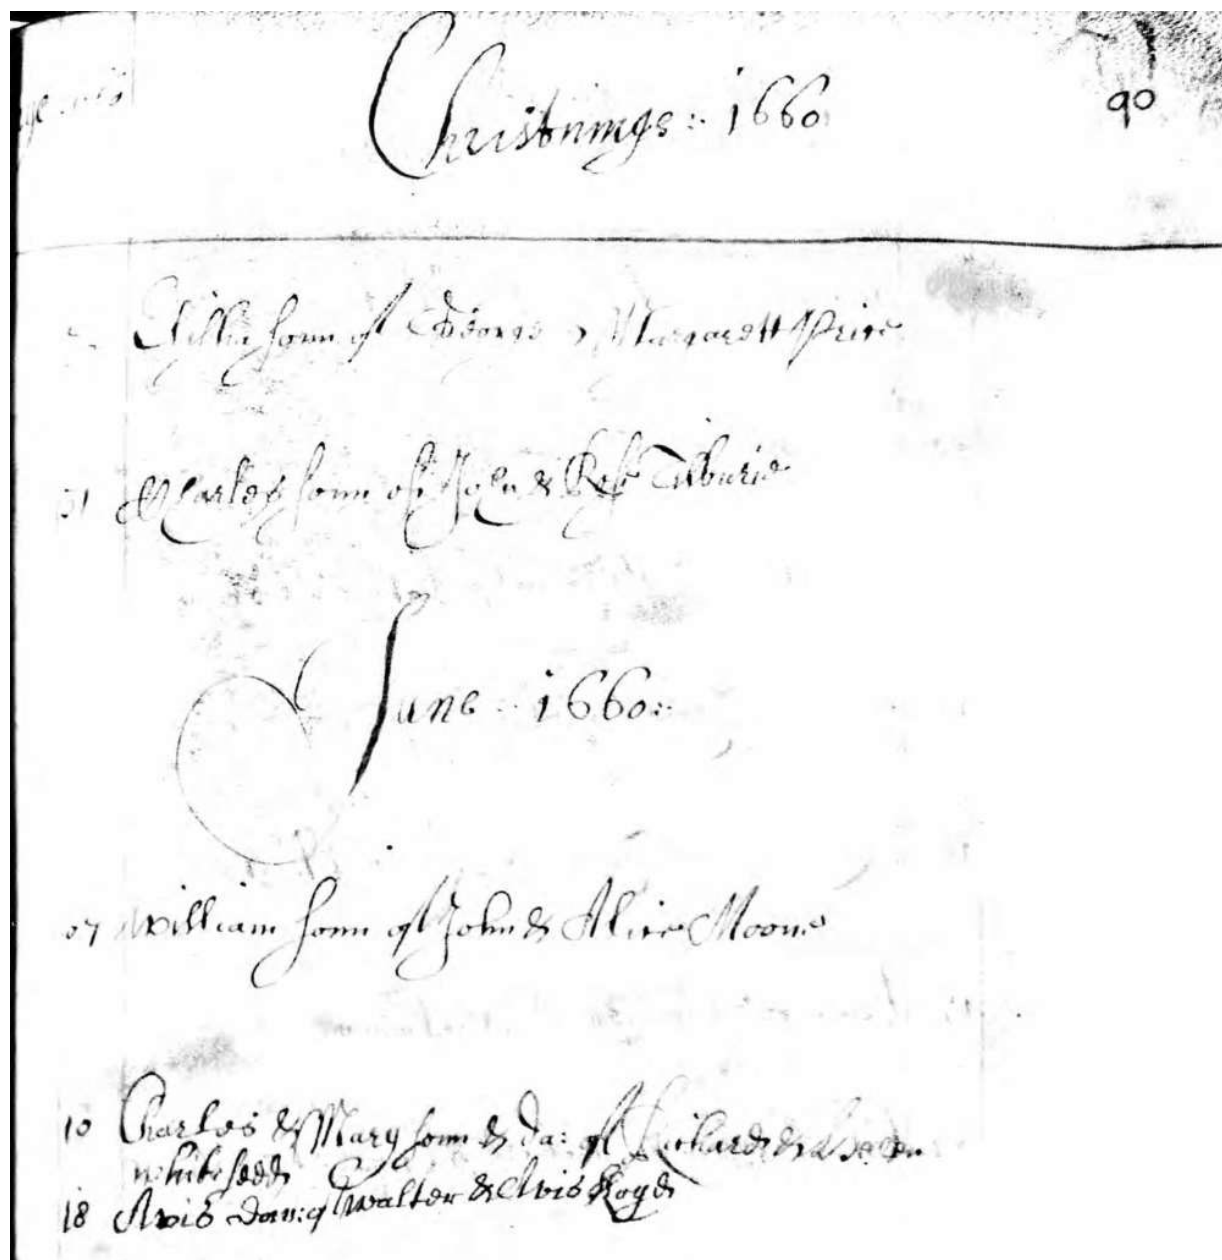 Christnings: 1660
90
sonn of George & Margarett Price
31 Charles sonn of John & Rose Tilburie
June: 1660:
07 William sonn of John & Alice Moone
10 Charles & Mary sonn & da: of Richard &
whithedd
18 Avis dau: of Walter & Avis